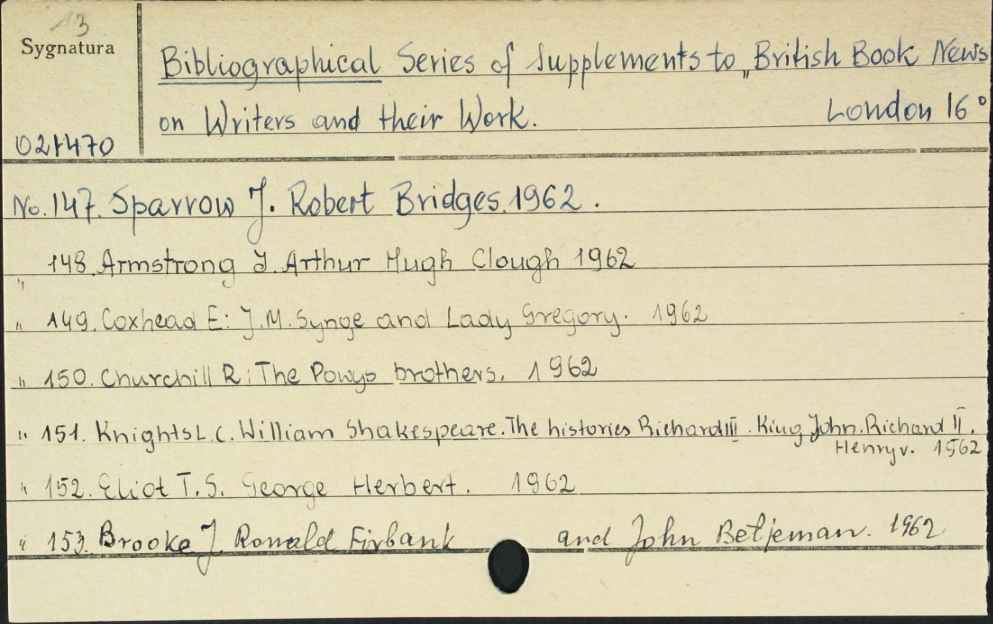 13
Sygnatura
021470
Bibliographical Series of Supplements to „British Book News
on Writers and their Work.
London 16°
No. 147. Sparrow J. Robert Bridges. 1962.
" 148. Armstrong J. Arthur Hugh Clough 1962
" 149. Coxhead E: J.M. Synge and Lady Gregory. 1962
" 150. Churchill R: The Powys brothers. 1962
" 151. Knights L.C. William Shakespeare. The histories Richard III. King John. Richard II.
Henry V. 1962
" 152. Eliot T.S. George Herbert. 1962
" 153. Brooke J Ronald Firbank and John Betjeman. 1962